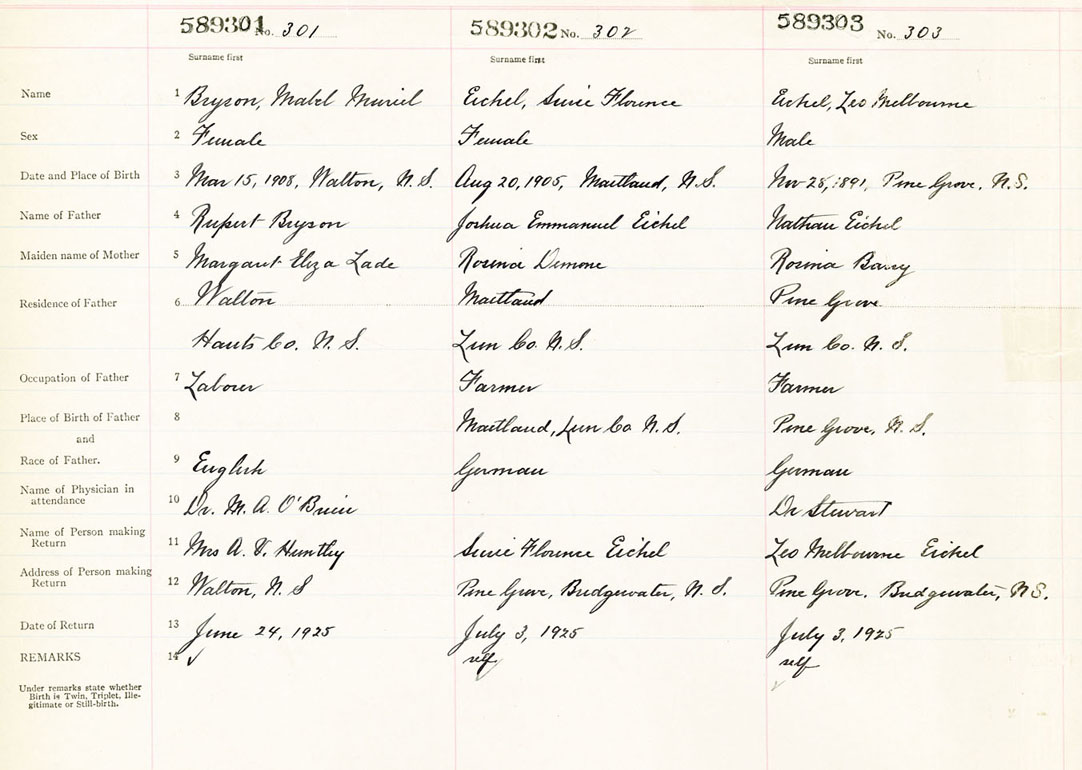 589301 No. 301 589302 No. 302 589303 No. 303
Surname first Surname first Surname first
Name 1 Bryson, Mabel Muriel Eichel, Susie Florence Eichel, Leo Melbourne
Sex 2 Female Female Male
Date and Place of Birth 3 Mar 15, 1908, Walton, N.S. Aug 20, 1905, Maitland, N.S. Nov 28, 1891, Pine Grove, N.S.
Name of Father 4 Rupert Bryson Joshua Emmanuel Eichel Nathan Eichel
Maiden name of Mother 5 Margaret Eliza Lade Rosina Demone Rosina Barry
Residence of Father 6 Walton Maitland Pine Grove
Hants Co. N.S. Lun Co. N.S. Lun Co. N.S.
Occupation of Father 7 Labour Farmer Farmer
Place of Birth of Father 8 Maitland, Lun Co N.S. Pine Grove, N.S.
and
Race of Father. 9 English German German
Name of Physician in
attendance 10 Dr. M. A. O'Brien Dr Stewart
Name of Person making
Return 11 Mrs A. V. Huntley Susie Florence Eichel Leo Melbourne Eichel
Address of Person making
Return 12 Walton, N.S Pine Grove, Bridgewater, N.S. Pine Grove, Bridgewater, N.S.
Date of Return 13 June 24, 1925 July 3, 1925 July 3, 1925
REMARKS 14 ✓ self self
Under remarks state whether
Birth is Twin, Triplet, Ille-
gitimate or Still-birth.